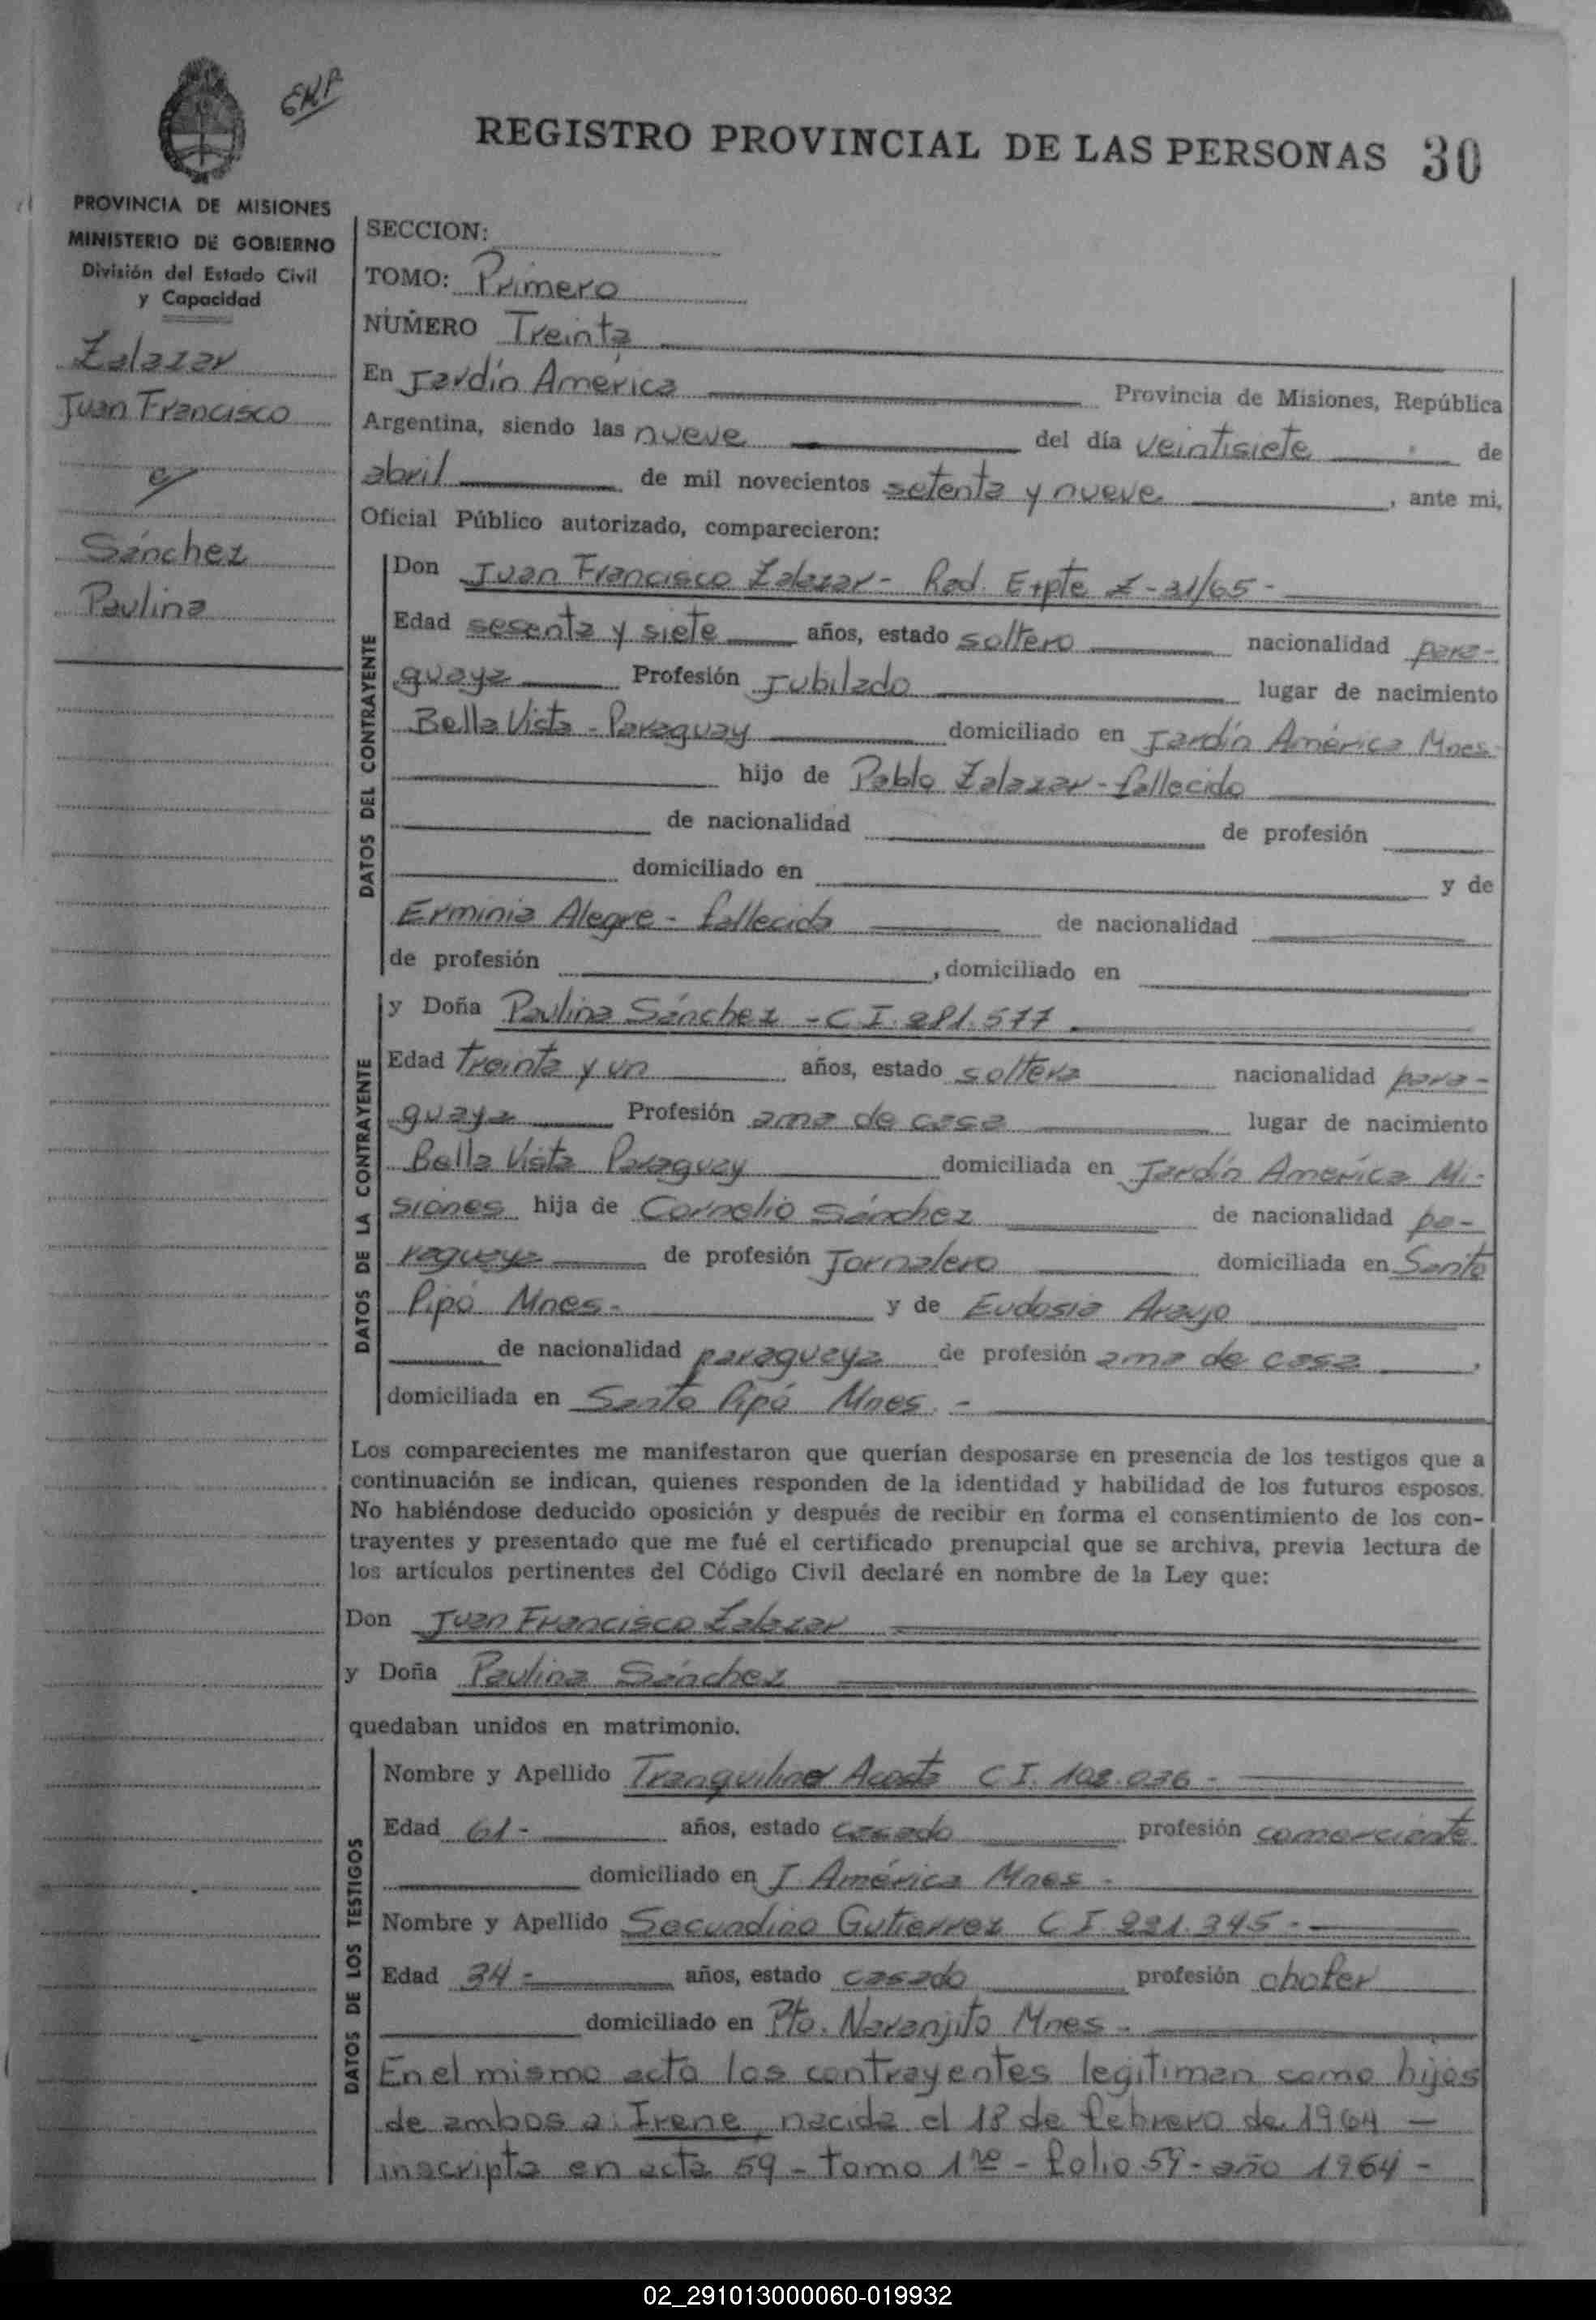 REGISTRO PROVINCIAL DE LAS PERSONAS 30
PROVINCIA DE MISIONES
MINISTERIO DE GOBIERNO
División del Estado Civil
y Capacidad
Zalazar
Juan Francisco
c/
Sánchez
Paulina
SECCION:
TOMO: Primero
NÚMERO Treinta
En Jardín América Provincia de Misiones, República
Argentina, siendo las nueve del día veintisiete de
abril de mil novecientos setenta y nueve, ante mi,
Oficial Público autorizado, comparecieron:
DATOS DEL CONTRAYENTE
Don Juan Francisco Zalazar - Rad. Expte Z-31/65 -
Edad sesenta y siete años, estado soltero nacionalidad para-
guaya Profesión Jubilado lugar de nacimiento
Bella Vista - Paraguay domiciliado en Jardín América Mnes
hijo de Pablo Zalazar - fallecido
de nacionalidad de profesión
domiciliado en y de
Erminia Alegre - fallecida de nacionalidad
de profesión , domiciliado en
DATOS DE LA CONTRAYENTE
y Doña Paulina Sánchez - C I. 281.577
Edad treinta y un años, estado soltera nacionalidad para-
guaya Profesión ama de casa lugar de nacimiento
Bella Vista Paraguay domiciliada en Jardín América Mi-
siones hija de Cornelio Sánchez de nacionalidad pa-
raguaya de profesión Jornalero domiciliada en Santo
Pipó Mnes. y de Eudosia Araujo
de nacionalidad paraguaya de profesión ama de casa ,
domiciliada en Santo Pipó Mnes. -
Los comparecientes me manifestaron que querían desposarse en presencia de los testigos que a
continuación se indican, quienes responden de la identidad y habilidad de los futuros esposos.
No habiéndose deducido oposición y después de recibir en forma el consentimiento de los con-
trayentes y presentado que me fué el certificado prenupcial que se archiva, previa lectura de
los artículos pertinentes del Código Civil declaré en nombre de la Ley que:
Don Juan Francisco Zalazar
y Doña Paulina Sánchez
quedaban unidos en matrimonio.
DATOS DE LOS TESTIGOS
Nombre y Apellido Tranquilino Acosta C I. 102.036 -
Edad 61 - años, estado casado profesión comerciante
domiciliado en J. América Mnes -
Nombre y Apellido Secundino Gutierrez C I. 221.345 -
Edad 34 - años, estado casado profesión chofer
domiciliado en Pto. Naranjito Mnes -
En el mismo acto los contrayentes legitiman como hijos
de ambos a: Irene, nacida el 18 de febrero de 1964 -
inscripta en acta 59 - tomo 1ro - folio 59 - año 1964 -
02_291013000060-019932